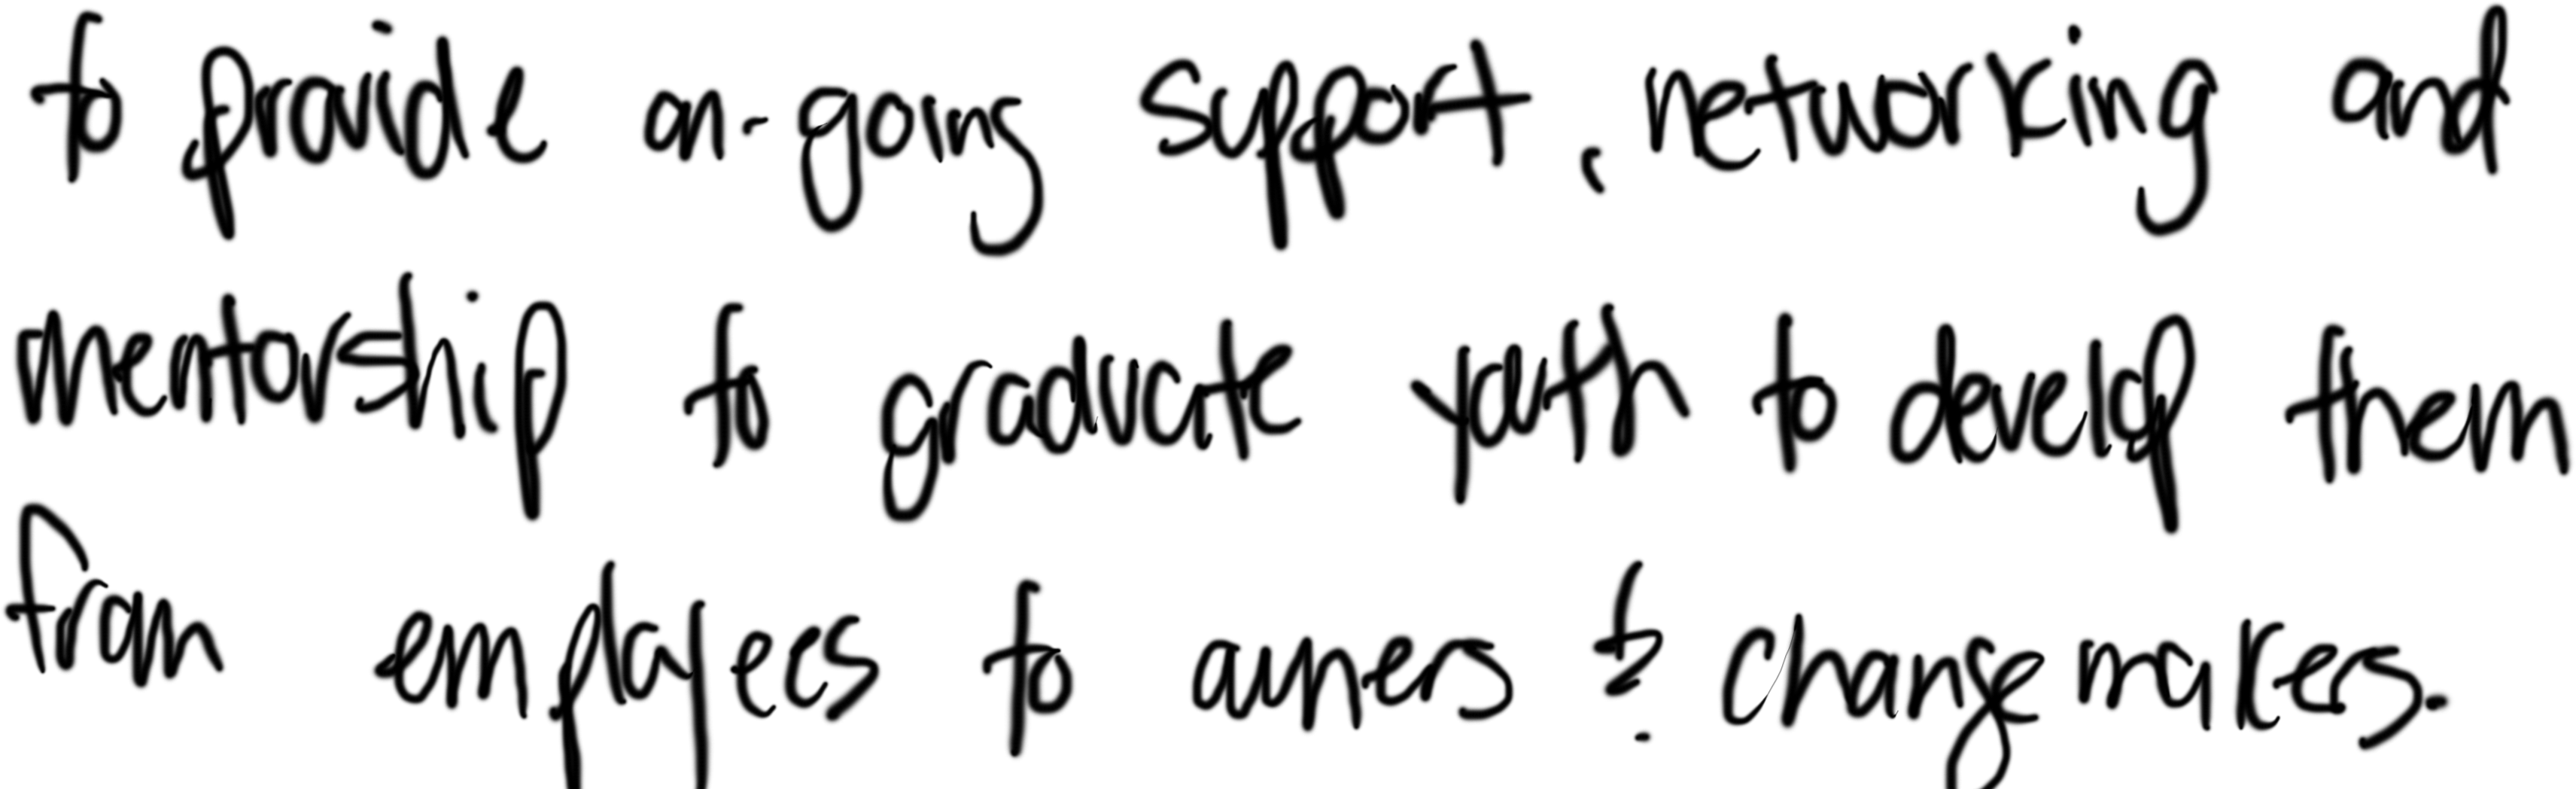 to provide on-going support, networking and
mentorship to graduate youth to develop them
from employees to owners & changemakers.